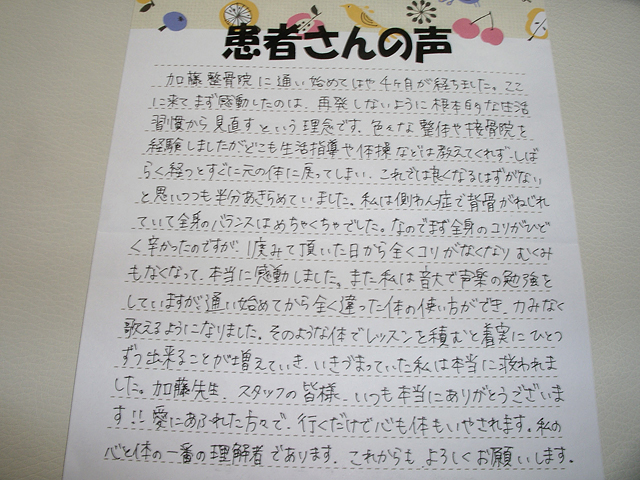 患者さんの声
加藤整骨院に通い始めてはや4ヶ月が経ちました。ここ
に来てまず感動したのは、再発しないように根本的な生活
習慣から見直すという理念です。色々な整体や接骨院を
経験しましたがどこも生活指導や体操などは教えてくれず、しば
らく経つとすぐに元の体に戻ってしまい、これでは良くなるはずがない
と思いつつも半分あきらめていました。私は側わん症で背骨がねじれ
ていて全身のバランスはめちゃくちゃでした。なのでまず全身のコリがひど
く辛かったのですが、1度みて頂いた日から全くコリがなくなりむくみ
もなくなって、本当に感動しました。また私は音大で声楽の勉強を
していますが、通い始めてから全く違った体の使い方ができ、力みなく
歌えるようになりました。そのような体でレッスンを積むと着実にひとつ
ずつ出来ることが増えていき、いきづまっていた私は本当に救われま
した。加藤先生、スタッフの皆様、いつも本当にありがとうございま
す!!愛にあふれた方々で、行くだけで心も体もいやされます。私の
心と体の一番の理解者であります。これからもよろしくお願いします。